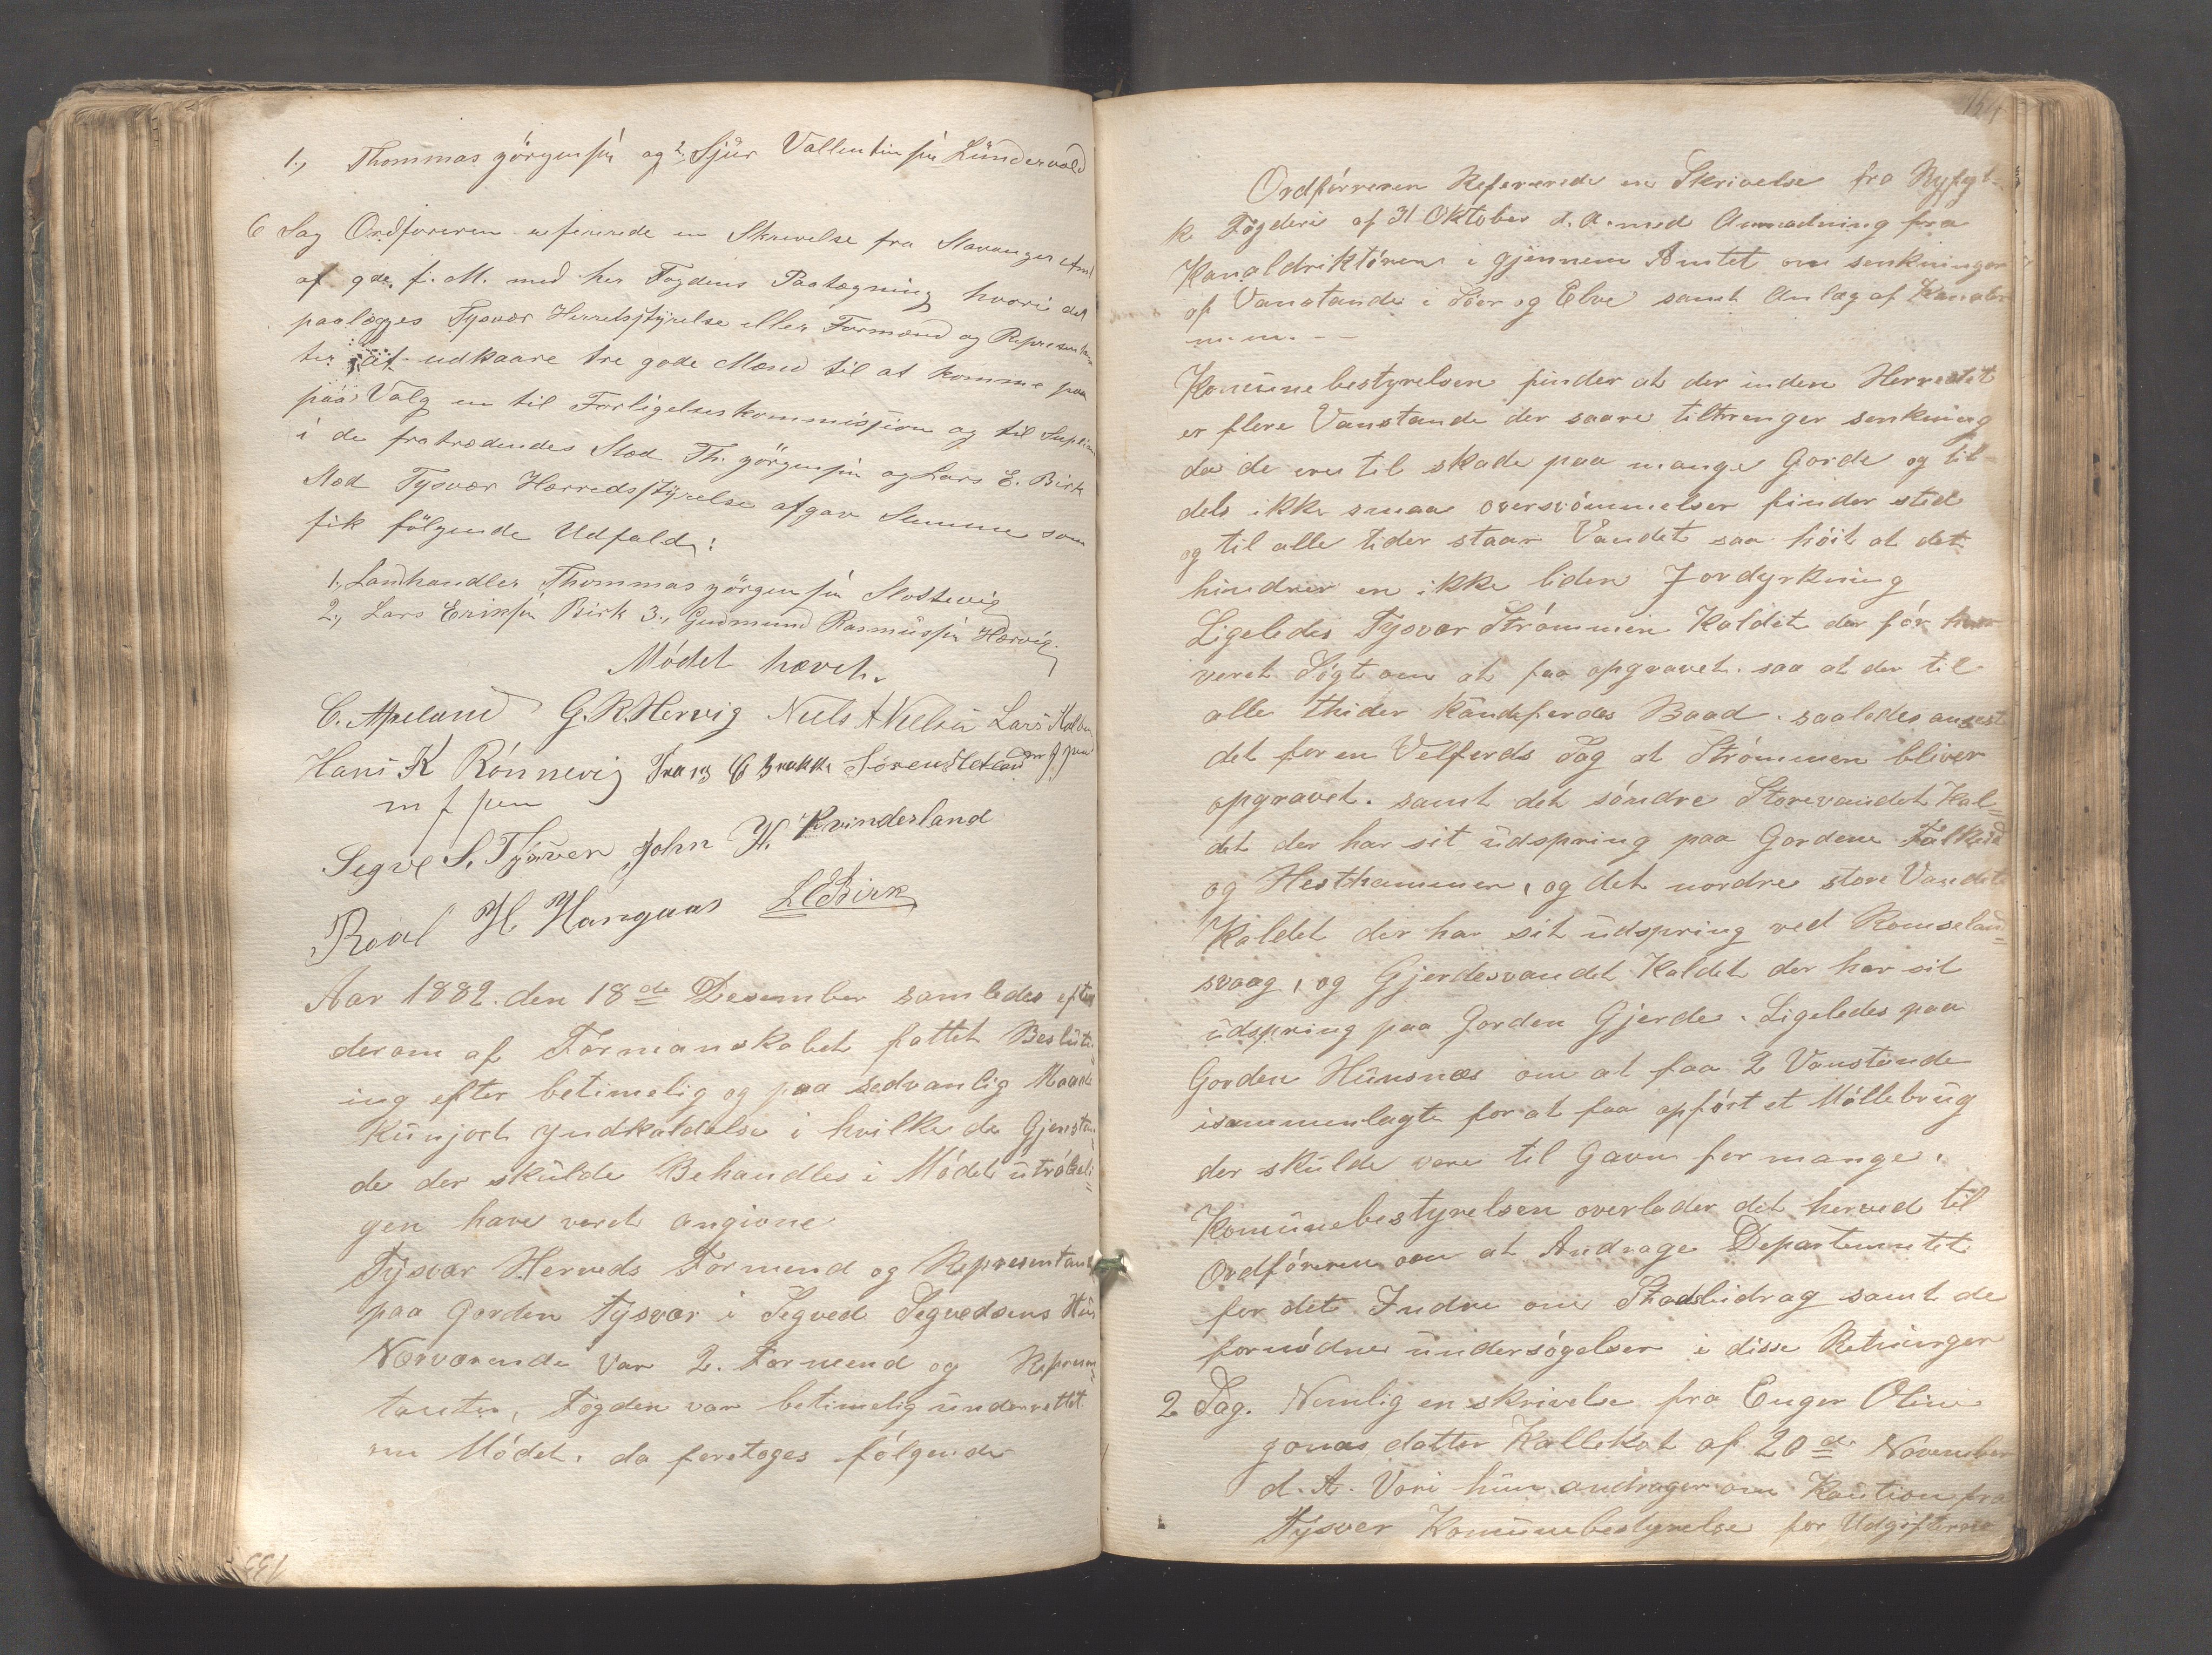 1., Thommas Jörgensen og 2. Sjur Vallentinsen Lundervold
6 Sag Ordføreren refererede en Skrivelse fra Stavanger Amt
af 9de f. M. med her Fogdens Paategning hvori det
paalægges Tysvær Herredsstyrelse eller Formænd og Repræsentan
ter at udkaare tre gode Mænd til at komme paa
paa Valg en til Forligelseskommission og til Suplian
i de fratrædendes Sted Th. Jörgensen og Lars E. Birk
Med Tysvær Herredsstyrelse afgav Stemme som
fik fölgende Udfald:
1., Landhandler Thommas Jörgensen Slottevig
2., Lars Eriksen Birk 3., Gudmund Rasmussen Hervig.
Mödet hævet.
C. Apeland G. R. Hervig Niels A Nielsen Lars
Hans K Rönnevig Frans C Brekke Sören m f pen
m f pen
Segve S. Tysver John H. Kvinderland
Roal H Hangaas L E Birk
Aar 1882. den 18de Desember samledes efter
derom af Formanskabet fattet Beslut-
ing efter betimelig og paa sedvanlig Maade
Kunjort yndkaldelse i hvilke de Gjenstan-
de der skulde Behandles i Mödet utrökeli-
gen have veret angivne
Tysvær Herreds Formend og Representant
paa Gorden Tysvær i Segved Segvedsens Hus
Nærværende var 2. Formend og Represen-
tanter, Fogden var betimelig underrettet
om Mödet. da foretoges fölgende
133
154
Ordförreren Refererede en Skrivelse fra Ryfyl-
k Fogderi af 31 Oktober d. A. med Anmodning fra
Kanaldriktören i gjennem Amtet om senkninger
af Vanstande i Söer og Elve samt Anlæg af Kanaler
m. m. - -
Komunebestyrelsen finder at der inden Herredet
er flere Vanstande der saare tiltrenger senkning
da de ere til skade paa mange Gorde og til-
dels ikke smaa oversvömmelser finder sted
og til alle tider staar Vandet saa höit at det
hindrer en ikke liden Jordyrkning
Ligeledes Tysvær Strömmen Kaldet der för har
veret Sögt om at faa opgravet. saa at der til
alle thider kunde ferdes Baad. saaledes ansest
det for en Velferds Sag at Strömmen bliver
opgravet. samt det söndre Storevandet Kal-
det der har sit udspring paa Gordene Falkeid
og Hesthammer, og det nordre store Vandet
Kaldet der har sit udspring ved Romseland-
svaag, og Gjerdesvandet Kaldet der har sit
udspring paa Gorden Gjerde. Ligeledes paa
Gorden Hunsnæs om at faa 2 Vanstande
isammenlagte for at faa opfört et Möllebrug
der skulde vere til Gavn for mange.
Komunebestyrelsen overlader det herved til
Ordföreren om at Andrage Departementet
for det Indre om Stadsbidrag samt de
fornödne undersögelser i disse Retninger
2 Sag. Nemlig en skrivelse fra Enger Oline
Jonas datter Kallekot af 20de November
d. A. Vori hun andrager om Kaution fra
Tysver Komunebestyrelse for Udgifterne